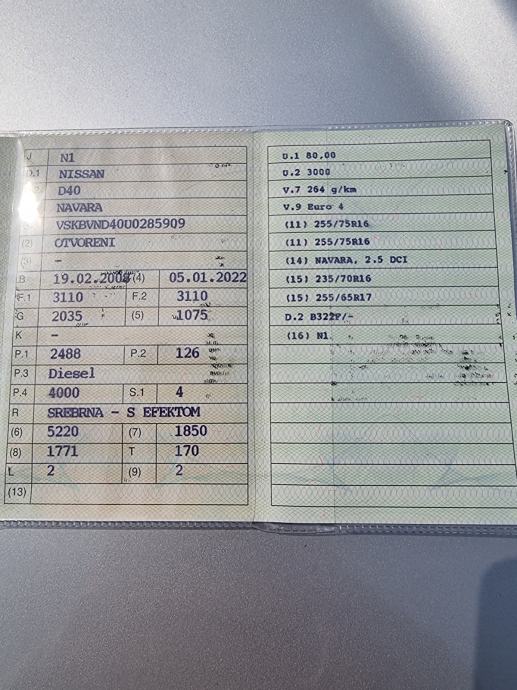 J N1
D.1 NISSAN
D40
NAVARA
VSKBVND40U0285909
(2) OTVORENI
(3) -
B 19.02.2008 (4) 05.01.2022
F.1 3110 F.2 3110
G 2035 (5) 1075
K -
P.1 2488 P.2 126
P.3 Diesel
P.4 4000 S.1 4
R SREBRNA - S EFEKTOM
(6) 5220 (7) 1850
(8) 1771 T 170
L 2 (9) 2
(13)
U.1 80,00
U.2 3000
V.7 264 g/km
V.9 Euro 4
(11) 255/75R16
(11) 255/75R16
(14) NAVARA, 2.5 DCI
(15) 235/70R16
(15) 255/65R17
D.2 B322P/-
(16) N1